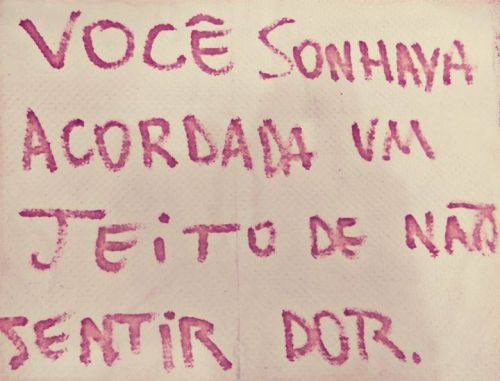 VOCÊ SONHAVA
ACORDADA UM
JEiTO DE NÃO
SENTiR DOR.